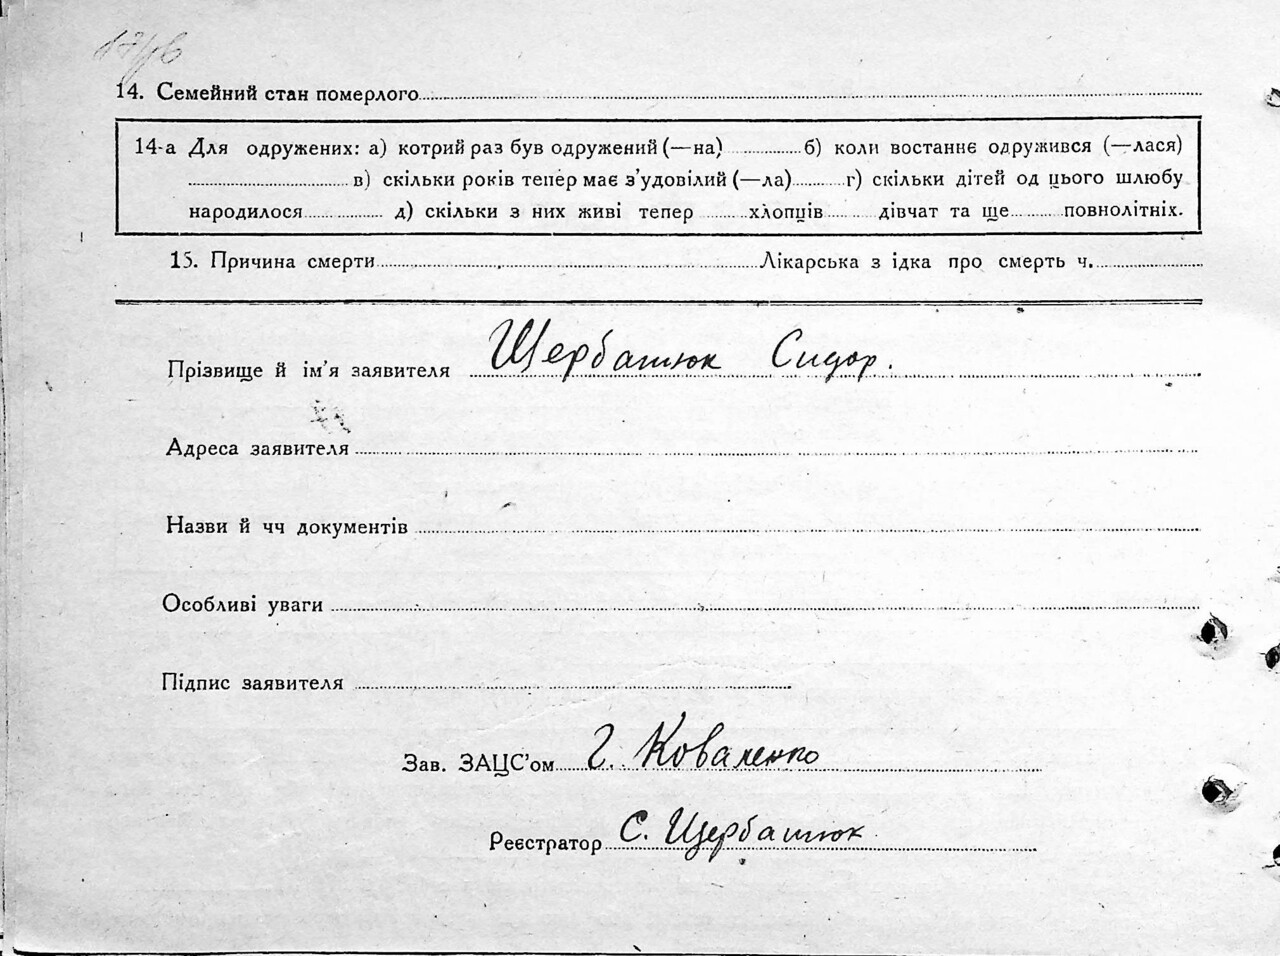 14. Семейний стан померлого
14-а Для одружених: а) котрий раз був одружений (—на) б) коли востаннє одружився (—лася)
в) скільки років тепер має з'удовілий (—ла) г) скільки дітей од цього шлюбу
народилося д) скільки з них живі тепер хлопців дівчат та ще повнолітніх.
15. Причина смерти Лікарська з ідка про смерть ч.
Прізвище й ім'я заявителя Щербатюк Сидор.
Адреса заявителя
Назви й чч документів
Особливі уваги
Підпис заявителя
Зав. ЗАЦС'ом Г. Коваленко
Реєстратор С. Щербатюк